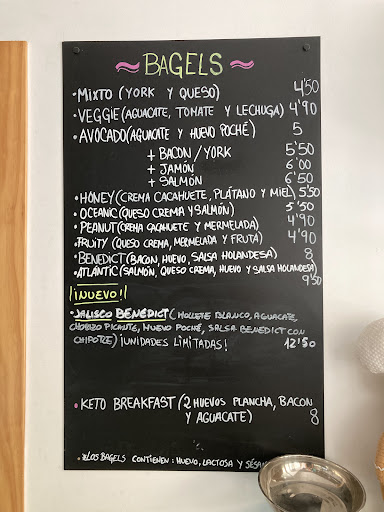 ~BAGELS~
•MIXTO (YORK Y QUESO) 4'50
•VEGGIE (AGUACATE, TOMATE Y LECHUGA) 4'90
•AVOCADO (AGUACATE Y HUEVO POCHÉ) 5
+ BACON / YORK 5'50
+ JAMÓN 6'00
+ SALMÓN 6'50
•HONEY (CREMA CACAHUETE, PLÁTANO Y MIEL) 5'50
•OCEANIC (QUESO CREMA Y SALMÓN) 5'50
•PEANUT (CREMA CACAHUETE Y MERMELADA) 4'90
•FRUITY (QUESO CREMA, MERMELADA Y FRUTA) 4'90
•BENEDICT (BACON, HUEVO, SALSA HOLANDESA) 8
•ATLANTIC (SALMÓN, QUESO CREMA, HUEVO Y SALSA HOLANDESA)
9'50
¡NUEVO!
•JALISCO BENEDICT (MOLLETE BLANCO, AGUACATE,
CHORIZO PICANTE, HUEVO POCHÉ, SALSA BENEDICT CON
CHIPOTLE) ¡UNIDADES LIMITADAS! 12'50
•KETO BREAKFAST (2 HUEVOS PLANCHA, BACON
Y AGUACATE) 8
*LOS BAGELS CONTIENEN: HUEVO, LACTOSA Y